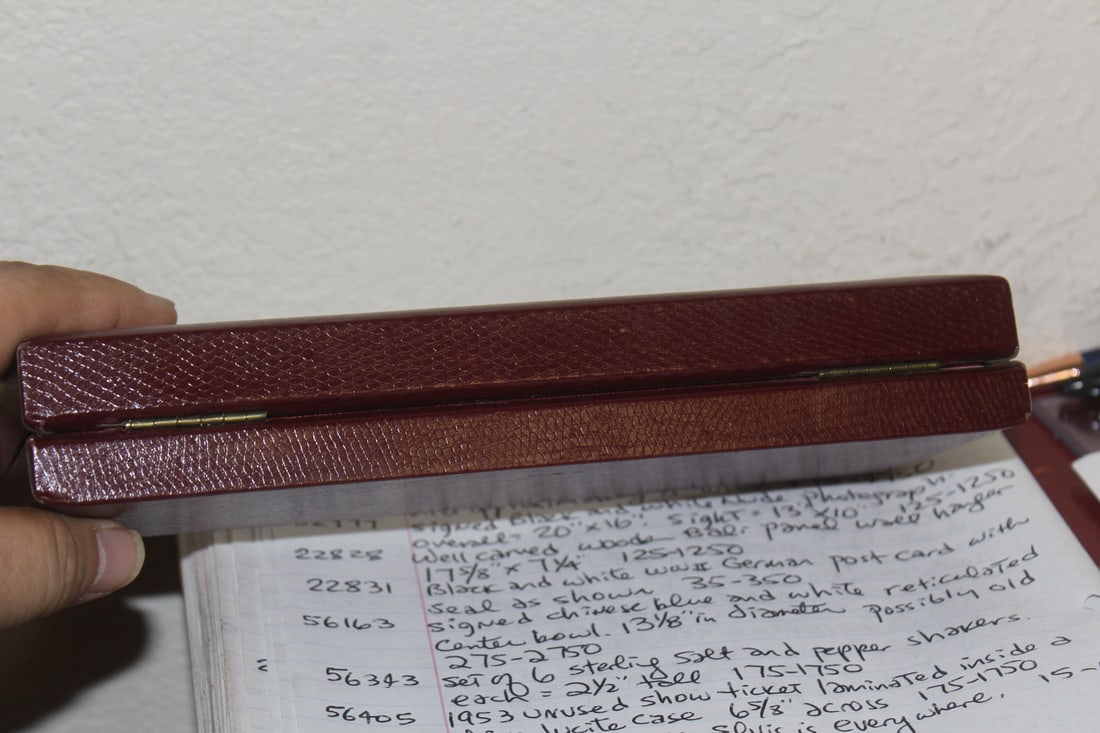 signed Black and white Nude photograph.
overall = 20" x 16" sight = 13" x 10" 125-1250
22828 well carved wooden Bali panel wall hanger
17 5/8" x 7 1/4" 125-1250
22831 Black and white WWII German post card with
seal as shown 35-350
56163 signed chinese blue and white reticulated
center bowl. 13 1/8" in diameter possibly old
275-2750
56343 set of 6 sterling salt and pepper shakers.
each = 2 1/2" tall 175-1750
56405 1953 unused show ticket laminated inside a
white case 6 5/8" across 175-1750 15-
is everywhere.